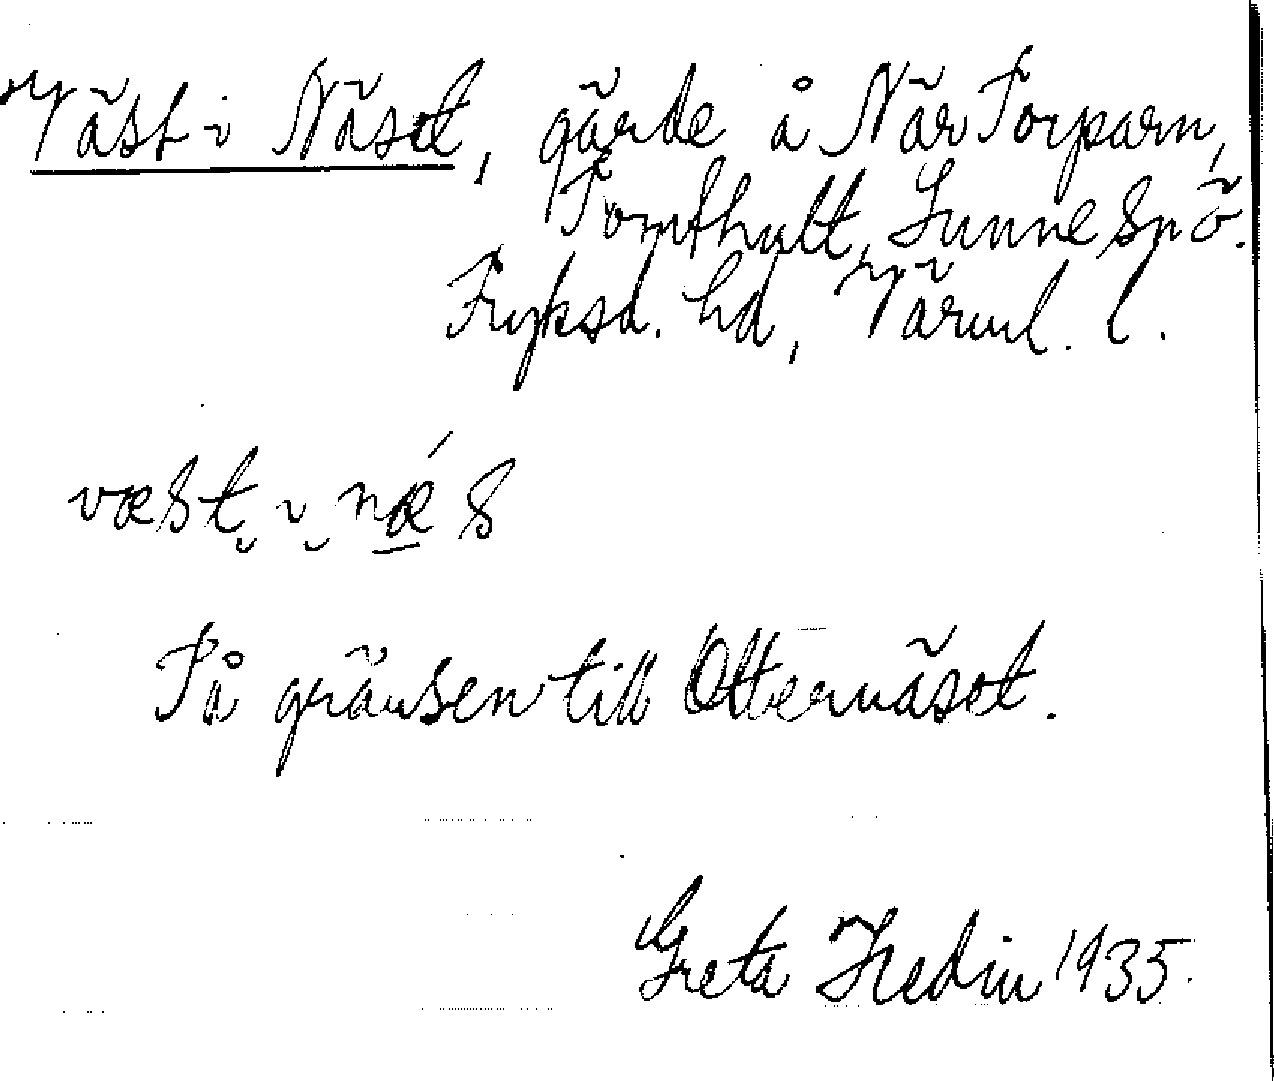 Väst i Näset, gärde å När Torparn,
Tomthult, Sunne Spö.
Fryksd. hd, Värml. l.
væst i nǽs
På gränsen till Otternäset.
Greta Hedin 1935.